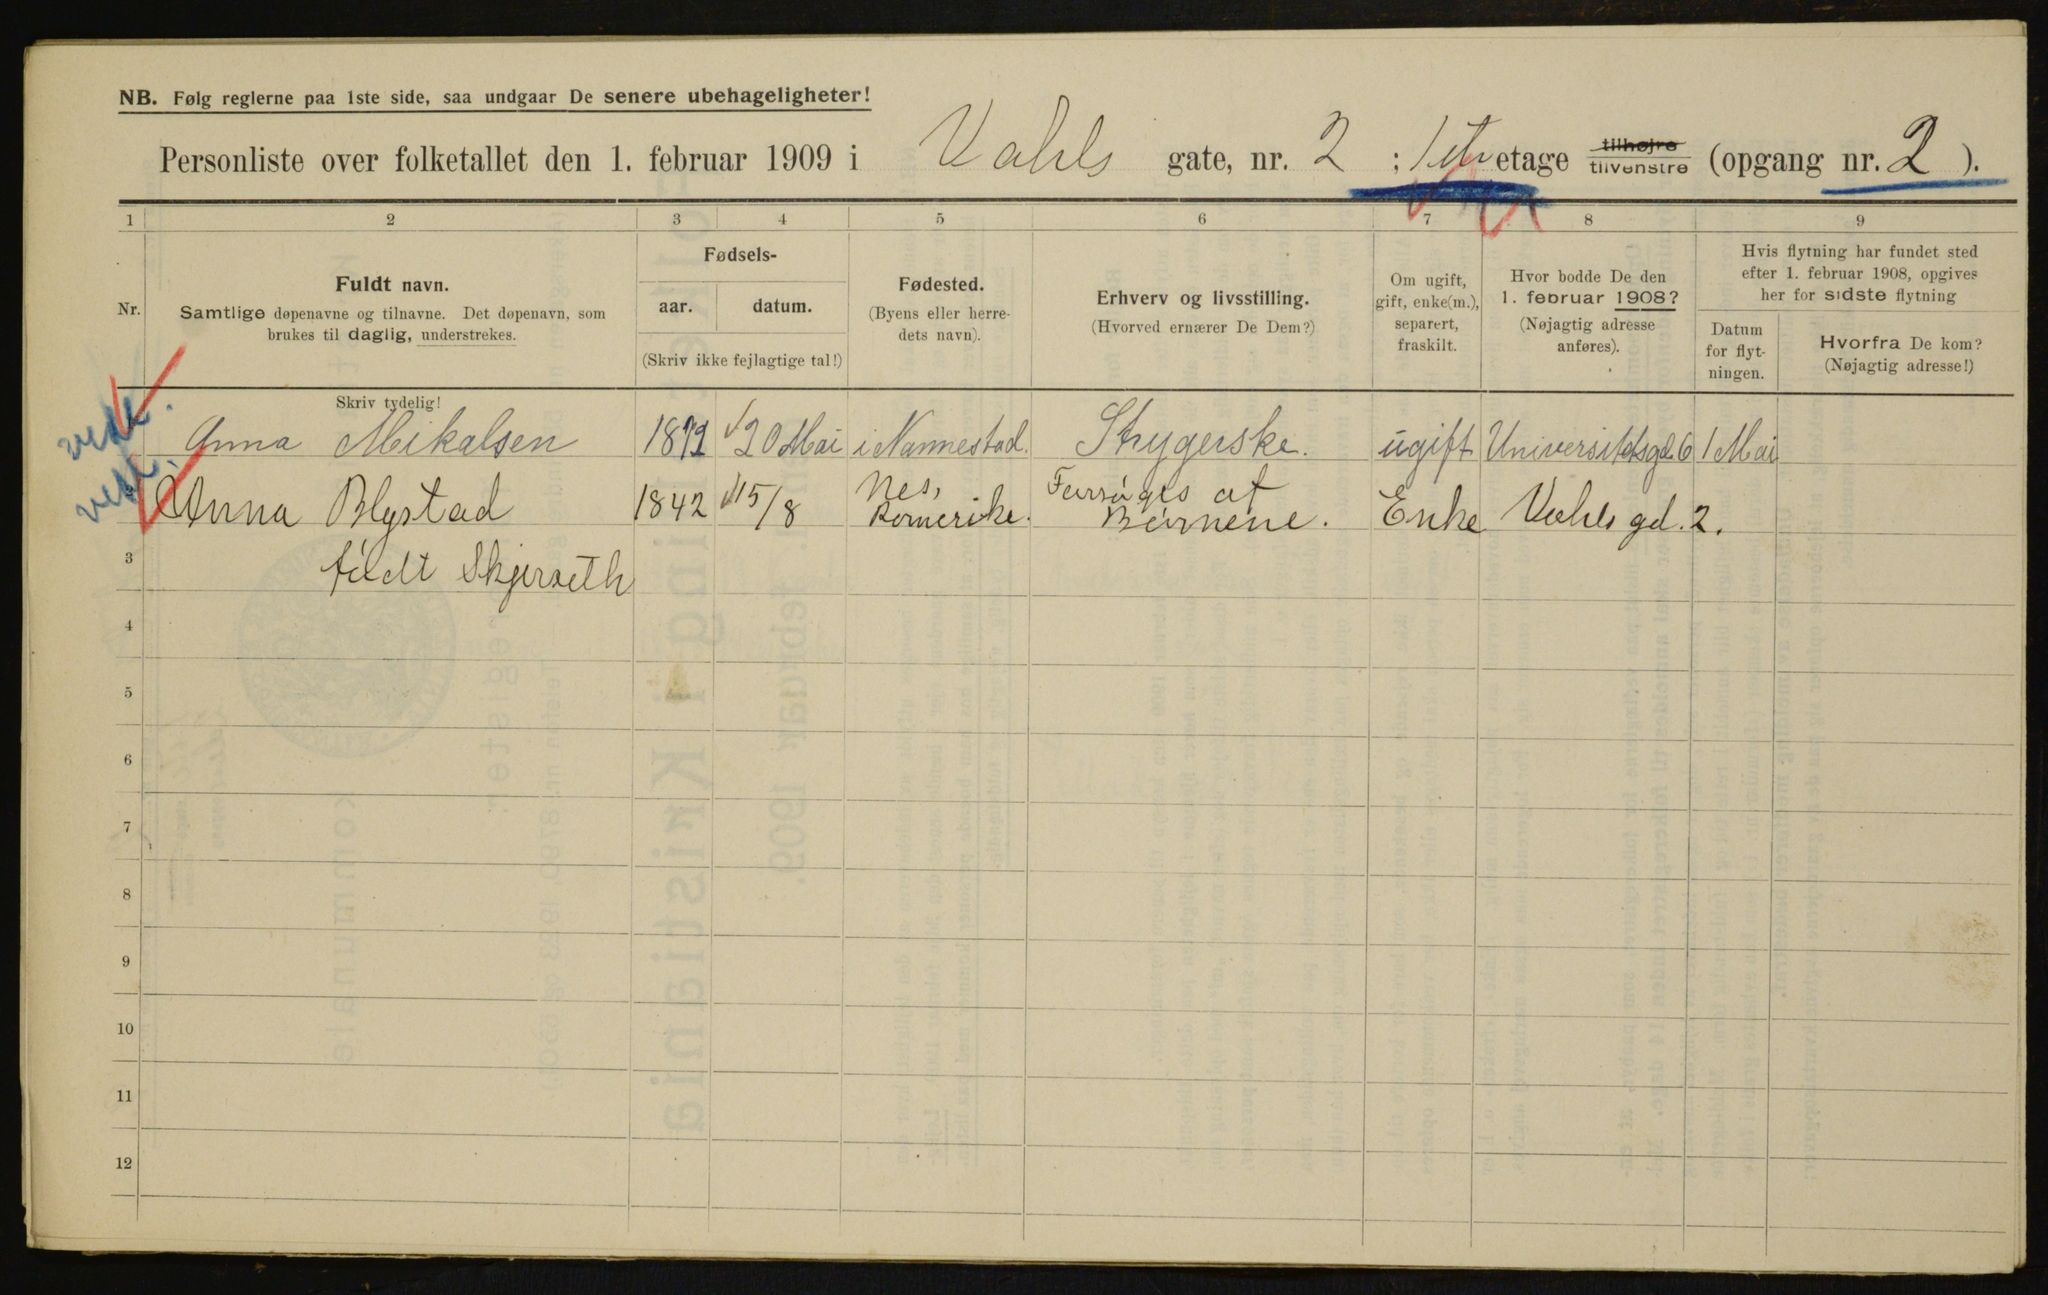 NB. Følg reglerne paa 1ste side, saa undgaar De senere ubehageligheter!
Personliste over folketallet den 1. februar 1909 i Vahls gate, nr. 2 ; 1ste etage tilhøjre tilvenstre (opgang nr. 2 ).
1 2 3 4 5 6 7 8 9
Nr.
Fuldt navn.
Samtlige døpenavne og tilnavne. Det døpenavn, som
brukes til daglig, understrekes.
Fødsels-
aar. datum.
(Skriv ikke fejlagtige tal!)
Fødested.
(Byens eller herre-
dets navn).
Erhverv og livsstilling.
(Hvorved ernærer De Dem?)
Om ugift,
gift, enke(m.),
separert,
fraskilt.
Hvor bodde De den
1. februar 1908?
(Nøjagtig adresse
anføres).
Hvis flytning har fundet sted
efter 1. februar 1908, opgives
her for sidste flytning
Datum
for flyt-
ningen.
Hvorfra De kom?
(Nøjagtig adresse!)
Skriv tydelig!
Anna Mikalsen 1872 20 Mai i Nannestad. Strygerske. ugift Universitetsgd 6 1 Mai
Anna Blystad 1842 15/8 Nes, Romerike. Forsørges af Børnene. Enke Vahls gd. 2.
3 født Skjerseth
4
5
6
7
8
9
10
11
12